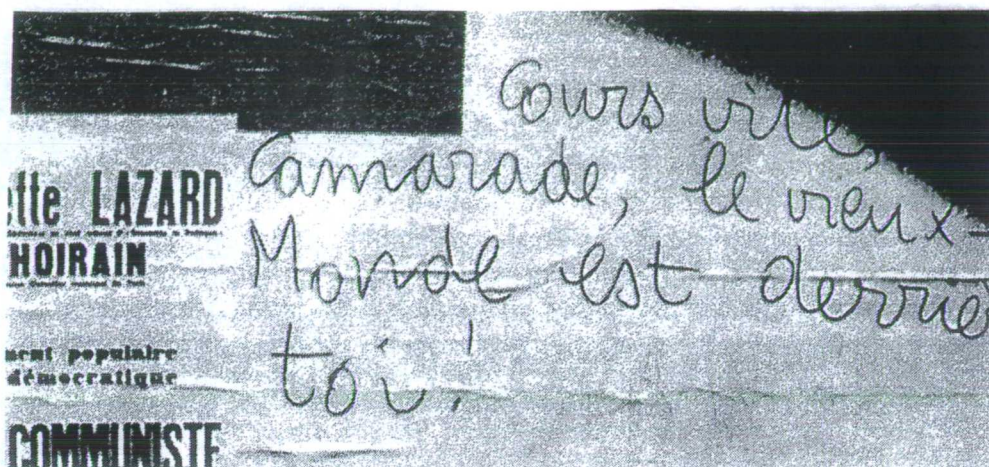 Cours vite,
Camarade, le vieux-
Monde est derriè
toi!
tte LAZARD
HOIRAIN
ment populaire
démocratique
COMMUNISTE